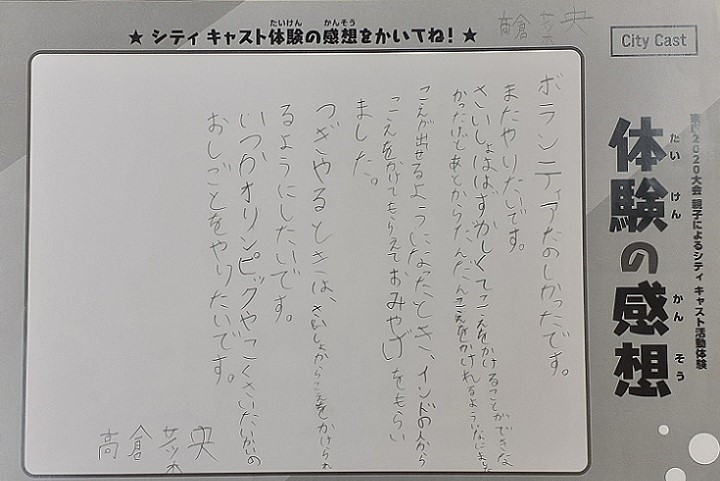 ★ シティ キャスト体験の感想をかいてね! ★
たいけん かんそう
City Cast
東京2020大会 親子によるシティ キャスト活動体験
体験の感想
たい けん かん そう
高倉 央
ボランティアたのしかったです。
またやりたいです。
さいしょははずかしくてこえをかけることができな
かったけどあとからだんだんこえをかけれるようになりました
こえが出せるようになったとき、インドの人から
こえをかけてもらえておみやげをもらい
ました。
つぎやるときは、さいしょからこえをかけられ
るようにしたいです。
いつかオリンピックやこくさいたいかいの
おしごとをやりたいです。
高倉 央